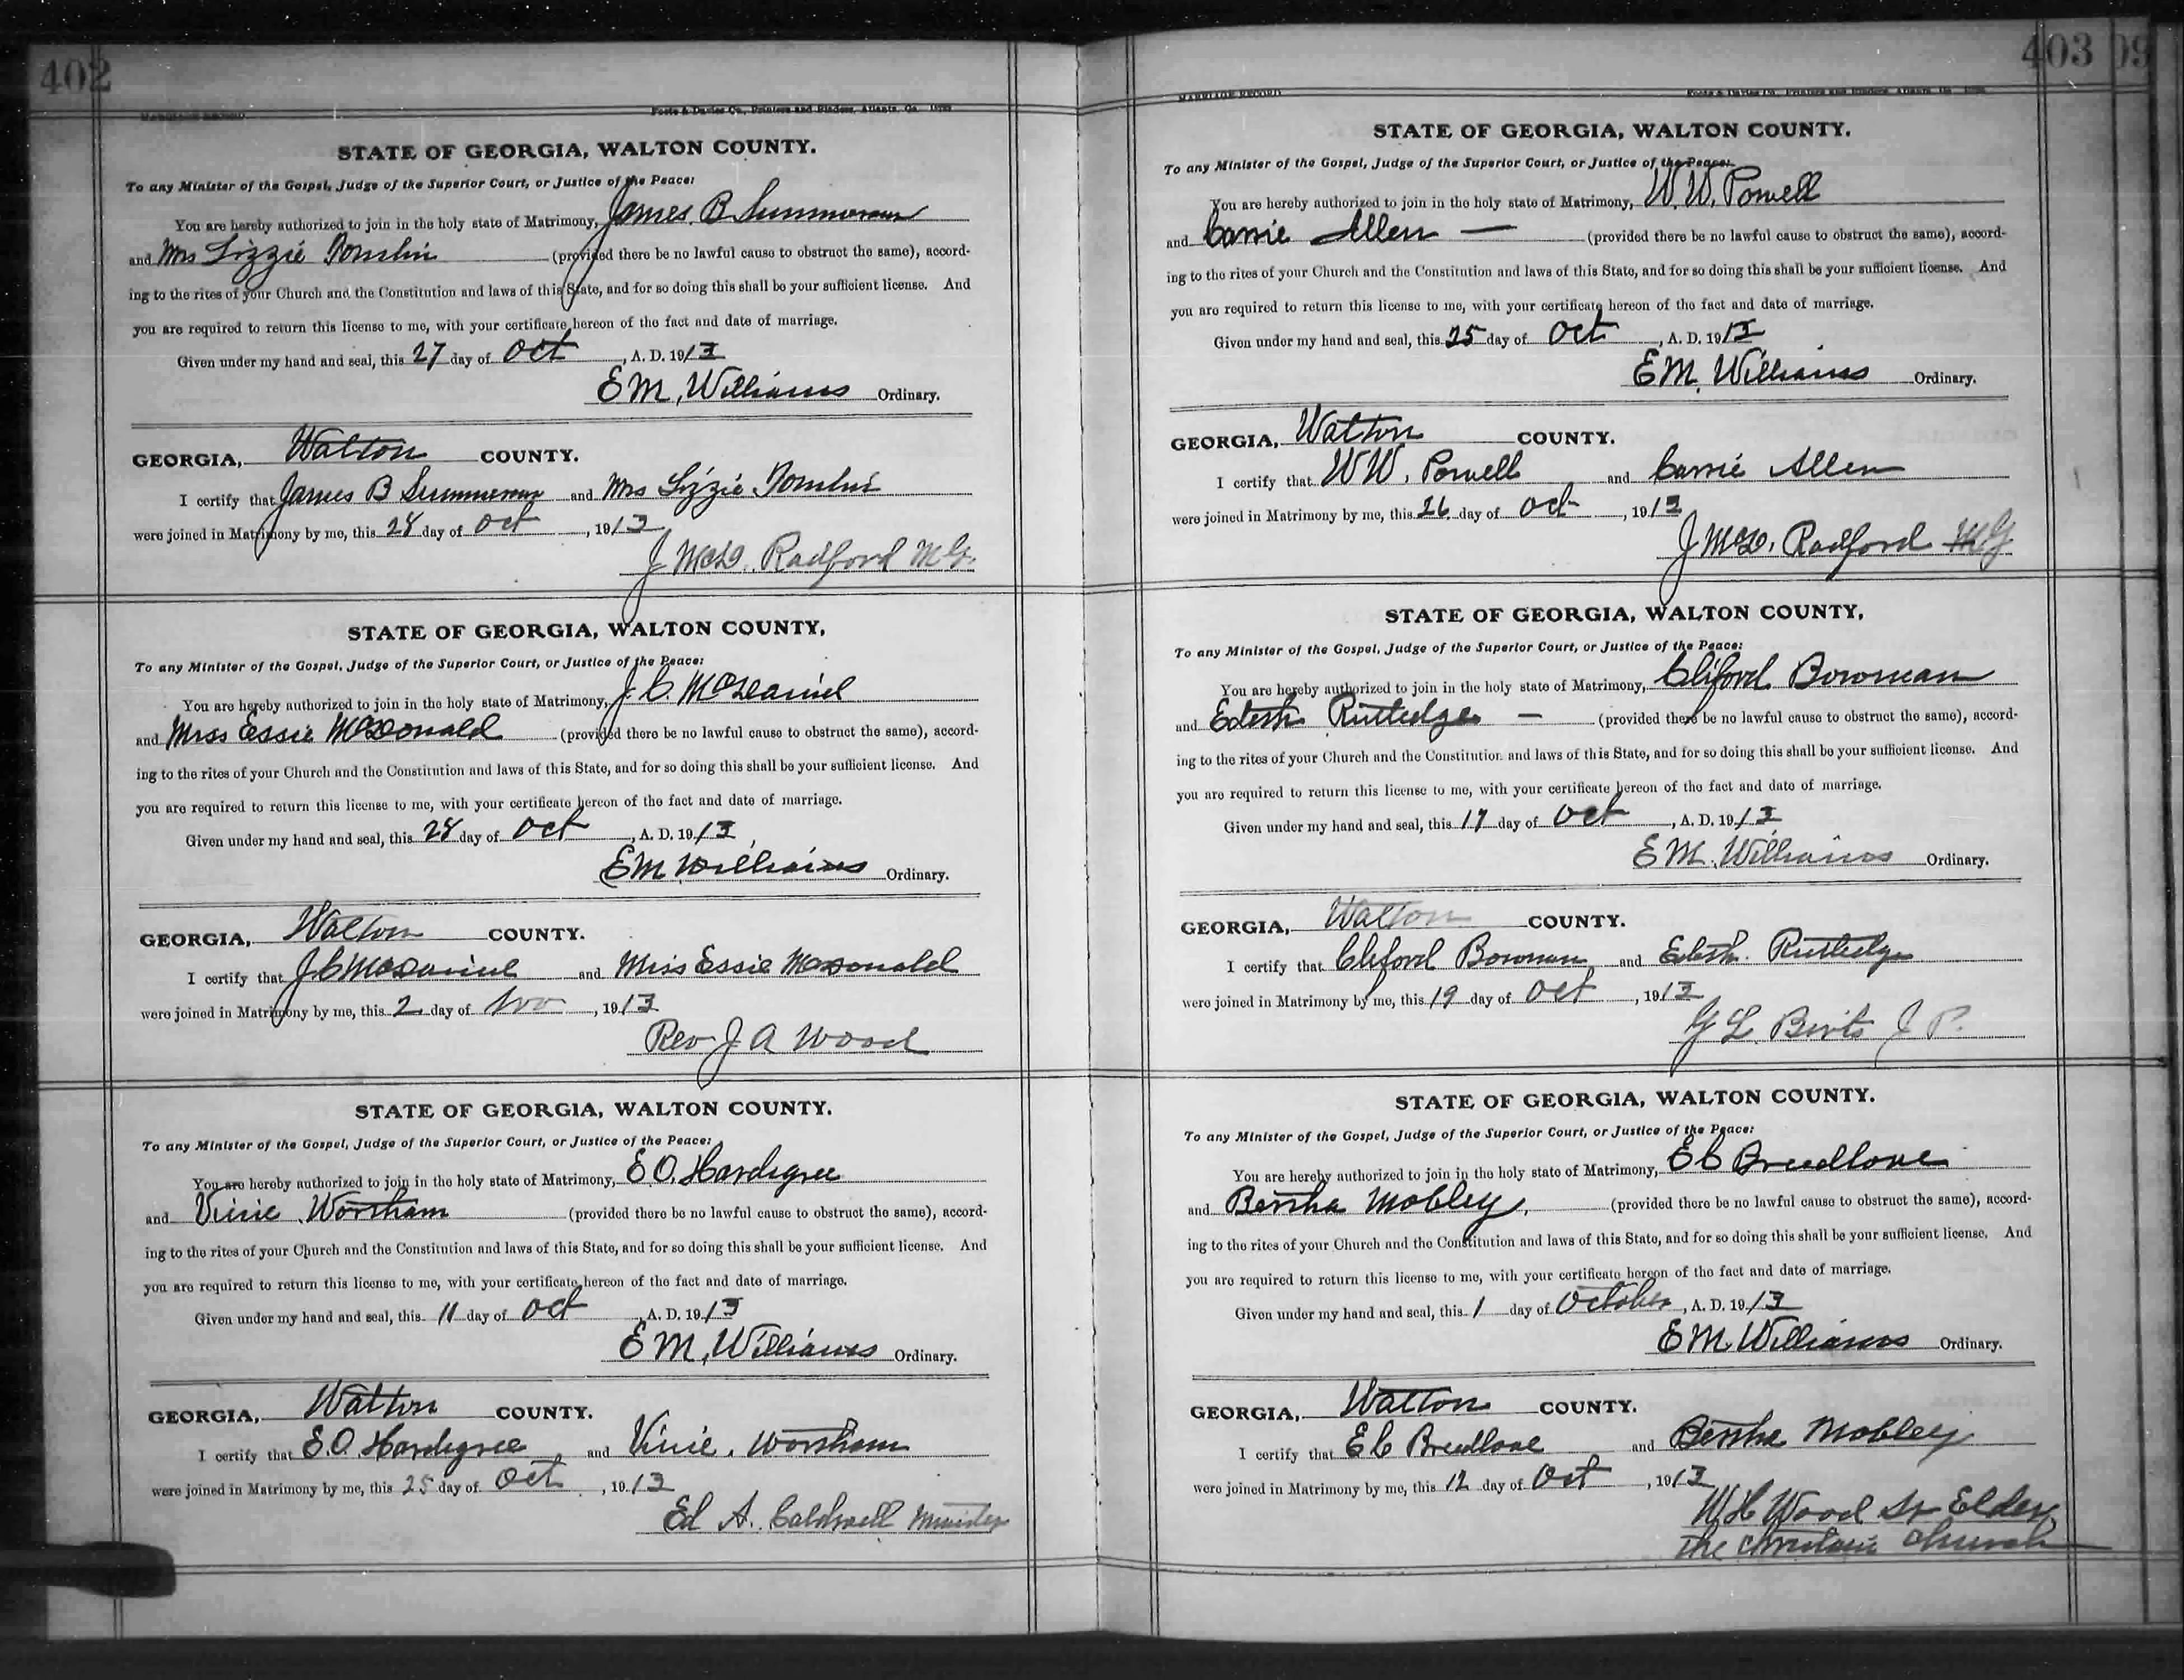 402
MARRIAGE RECORD
Foote & Davies Co., Printers and Binders, Atlanta, Ga.
STATE OF GEORGIA, WALTON COUNTY.
To any Minister of the Gospel, Judge of the Superior Court, or Justice of the Peace:
You are hereby authorized to join in the holy state of Matrimony, James B
and Mrs Lizzie Tomlin (provided there be no lawful cause to obstruct the same), accord-
ing to the rites of your Church and the Constitution and laws of this State, and for so doing this shall be your sufficient license. And
you are required to return this license to me, with your certificate hereon of the fact and date of marriage.
Given under my hand and seal, this 27 day of Oct, A. D. 1913
E M, Williams Ordinary.
GEORGIA, Walton COUNTY.
I certify that James B and Mrs Lizzie Tomlin
were joined in Matrimony by me, this 28 day of Oct, 1913
J McD. Radford M G.
STATE OF GEORGIA, WALTON COUNTY.
To any Minister of the Gospel, Judge of the Superior Court, or Justice of the Peace:
You are hereby authorized to join in the holy state of Matrimony, J. C. McDaniel
and Miss Essie McDonald (provided there be no lawful cause to obstruct the same), accord-
ing to the rites of your Church and the Constitution and laws of this State, and for so doing this shall be your sufficient license. And
you are required to return this license to me, with your certificate hereon of the fact and date of marriage.
Given under my hand and seal, this 28 day of Oct, A. D. 1913
E M Williams Ordinary.
GEORGIA, Walton COUNTY.
I certify that J C McDaniel and Miss Essie McDonald
were joined in Matrimony by me, this 2 day of Nov, 1913
Rev J A Wood
STATE OF GEORGIA, WALTON COUNTY.
To any Minister of the Gospel, Judge of the Superior Court, or Justice of the Peace:
You are hereby authorized to join in the holy state of Matrimony, E O. Hardigree
and Vinie Worsham (provided there be no lawful cause to obstruct the same), accord-
ing to the rites of your Church and the Constitution and laws of this State, and for so doing this shall be your sufficient license. And
you are required to return this license to me, with your certificate hereon of the fact and date of marriage.
Given under my hand and seal, this 11 day of Oct, A. D. 1913
E M, Williams Ordinary.
GEORGIA, Walton COUNTY.
I certify that E.O. Hardigree and Vinie Worsham
were joined in Matrimony by me, this 25 day of Oct, 1913
Ed A. Caldwell Minister
403
MARRIAGE RECORD
Foote & Davies Co., Printers and Binders, Atlanta, Ga.
STATE OF GEORGIA, WALTON COUNTY.
To any Minister of the Gospel, Judge of the Superior Court, or Justice of the Peace:
You are hereby authorized to join in the holy state of Matrimony, W. W. Powell
and Carrie Allen — (provided there be no lawful cause to obstruct the same), accord-
ing to the rites of your Church and the Constitution and laws of this State, and for so doing this shall be your sufficient license. And
you are required to return this license to me, with your certificate hereon of the fact and date of marriage.
Given under my hand and seal, this 25 day of Oct, A. D. 1913
E M. Williams Ordinary.
GEORGIA, Walton COUNTY.
I certify that W W. Powell and Carrie Allen
were joined in Matrimony by me, this 26 day of Oct, 1913
J McD. Radford M G
STATE OF GEORGIA, WALTON COUNTY,
To any Minister of the Gospel, Judge of the Superior Court, or Justice of the Peace:
You are hereby authorized to join in the holy state of Matrimony, Cliford Bowman
and Edith Rutledge — (provided there be no lawful cause to obstruct the same), accord-
ing to the rites of your Church and the Constitution and laws of this State, and for so doing this shall be your sufficient license. And
you are required to return this license to me, with your certificate hereon of the fact and date of marriage.
Given under my hand and seal, this 17 day of Oct, A. D. 1913
E M. Williams Ordinary.
GEORGIA, Walton COUNTY.
I certify that Cliford Bowman and Edith Rutledge
were joined in Matrimony by me, this 19 day of Oct, 1913
G L J P.
STATE OF GEORGIA, WALTON COUNTY.
To any Minister of the Gospel, Judge of the Superior Court, or Justice of the Peace:
You are hereby authorized to join in the holy state of Matrimony, E C Breedlove
and Bertha Mobley, (provided there be no lawful cause to obstruct the same), accord-
ing to the rites of your Church and the Constitution and laws of this State, and for so doing this shall be your sufficient license. And
you are required to return this license to me, with your certificate hereon of the fact and date of marriage.
Given under my hand and seal, this 1 day of October, A. D. 1913
E M Williams Ordinary.
GEORGIA, Walton COUNTY.
I certify that E C Breedlove and Bertha Mobley
were joined in Matrimony by me, this 12 day of Oct, 1913
W H Wood Sr Elder
The Christian Church